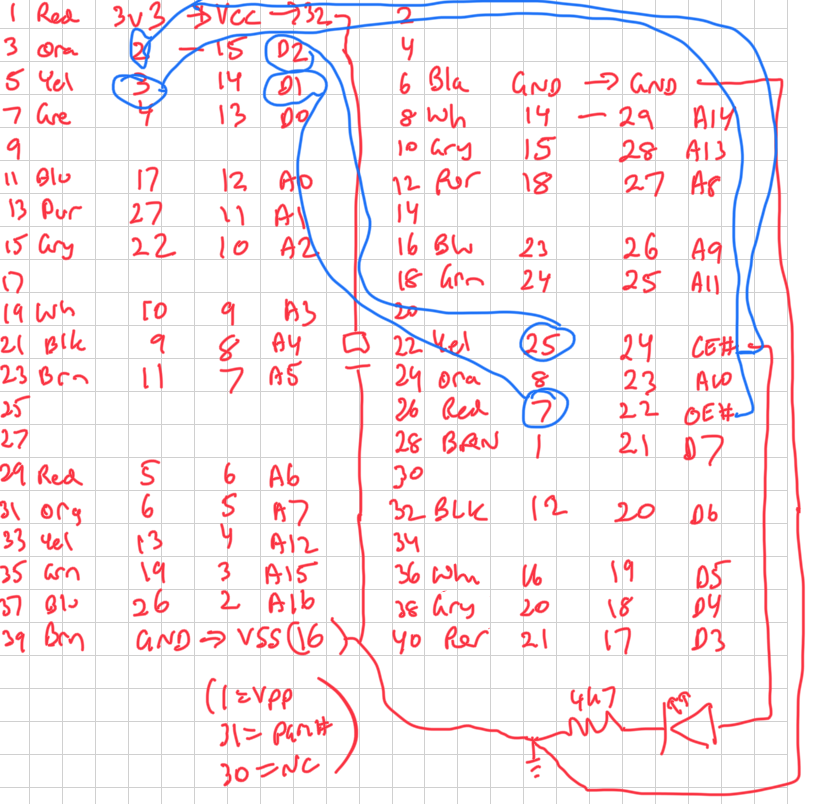 1 Red 3v3 → VCC → 32 2
3 Ora 2 — 15 D2 4
5 Yel 3 14 D1 6 Bla GND → GND
7 Gre 4 13 D0 8 Wh 14 — 29 A14
9 10 Gry 15 28 A13
11 Blu 17 12 A0 12 Pur 18 27 A8
13 Pur 27 11 A1 14
15 Gry 22 10 A2 16 Blu 23 26 A9
17 18 Grn 24 25 A11
19 Wh 10 9 A3 20
21 Blk 9 8 A4 22 Yel 25 24 CE#
23 Brn 11 7 A5 24 Ora 8 23 A10
25 26 Red 7 22 OE#
27 28 BRN 1 21 D7
29 Red 5 6 A6 30
31 Org 6 5 A7 32 BLK 12 20 D6
33 Yel 13 4 A12 34
35 Grn 19 3 A15 36 Whi 16 19 D5
37 Blu 26 2 A16 38 Gry 20 18 D4
39 Brn GND → VSS (16) 40 Per 21 17 D3
(1 = VPP 4k7
31 = PGM#
30 = NC)